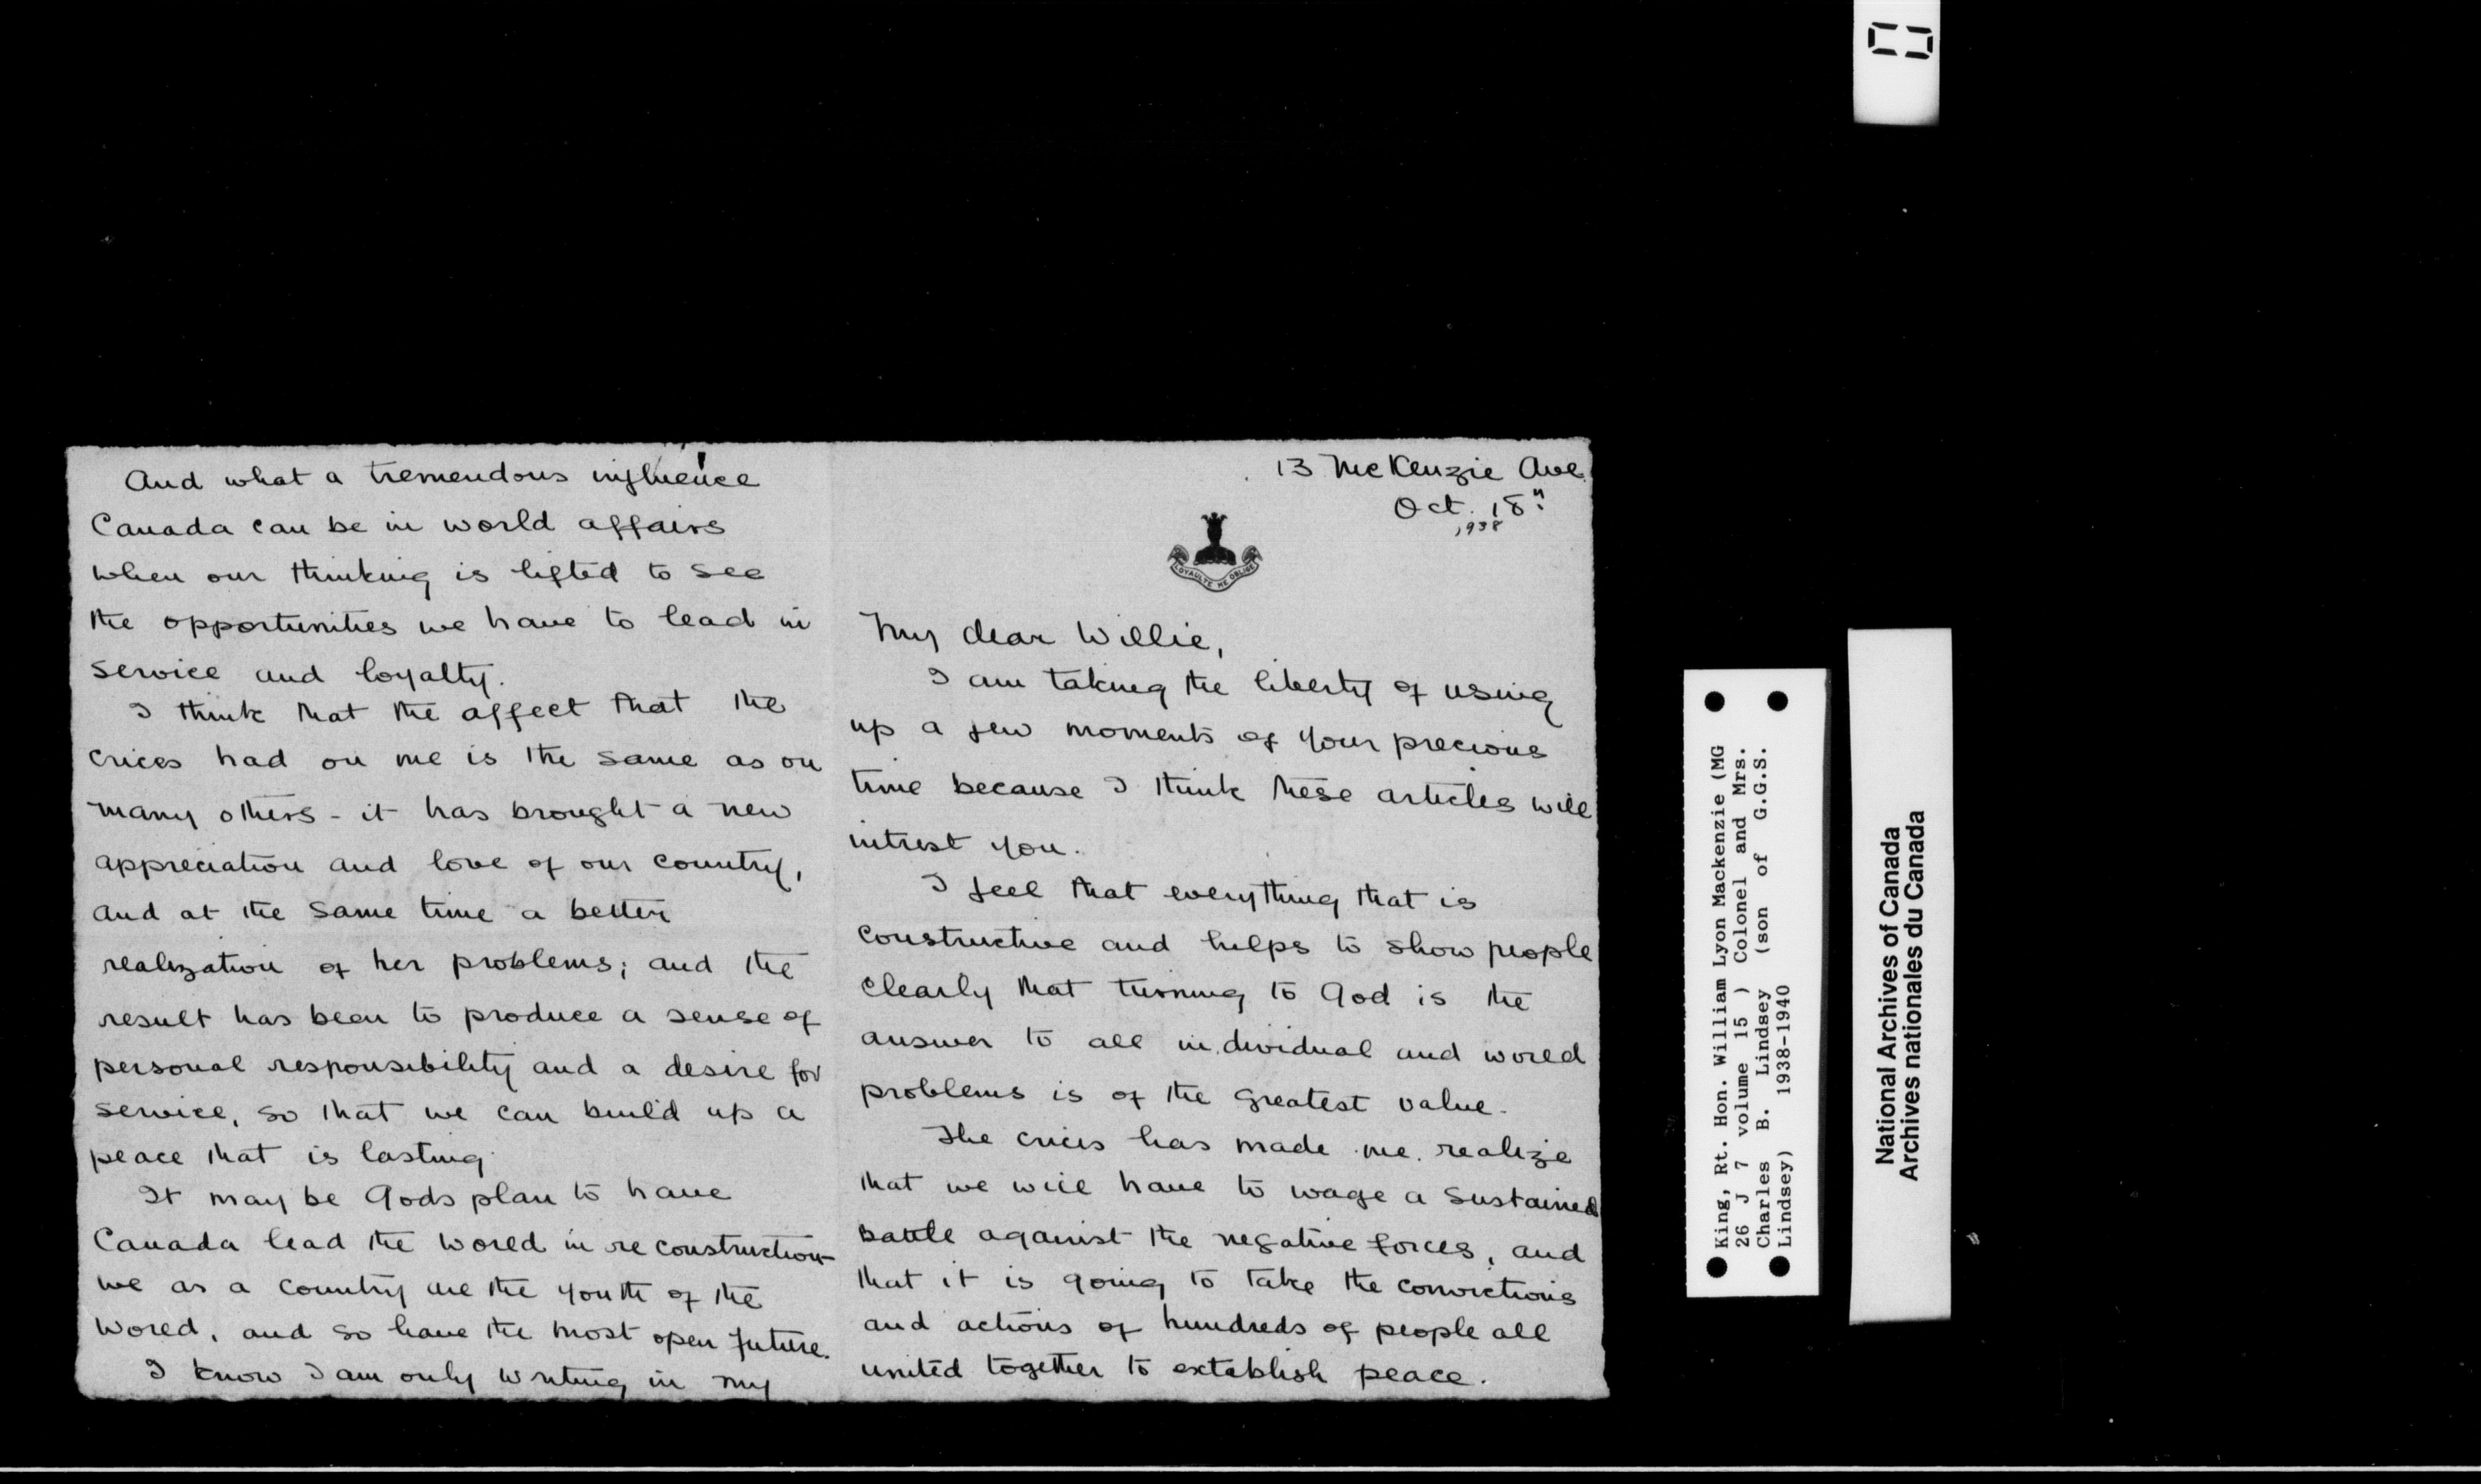 13 McKenzie Ave.
Oct. 18th
1938
LOYAULTÉ ME OBLIGE
My dear Willie,
I am taking the liberty of using
up a few moments of your precious
time because I think these articles will
intrest you.
I feel that everything that is
constructive and helps to show people
clearly that turning to God is the
answer to all individual and world
problems is of the greatest value.
The crices has made me realize
that we will have to wage a sustained
battle against the negative forces, and
that it is going to take the convictions
and actions of hundreds of people all
united together to extablish peace.
And what a tremendous influence
Canada can be in world affairs
when our thinking is lifted to see
the opportunities we have to lead in
service and loyalty.
I think that the affect that the
crices had on me is the same as on
many others - it has brought a new
appreciation and love of our country,
and at the same time a better
realization of her problems; and the
result has been to produce a sense of
personal responsibility and a desire for
service, so that we can build up a
peace that is lasting.
It may be Gods plan to have
Canada lead the world in reconstruction -
we as a country are the youth of the
world, and so have the most open future.
I know I am only writing in my
King, Rt. Hon. William Lyon Mackenzie (MG
26 J 7 volume 15 ) Colonel and Mrs.
Charles B. Lindsey (son of G.G.S.
Lindsey) 1938-1940
National Archives of Canada
Archives nationales du Canada